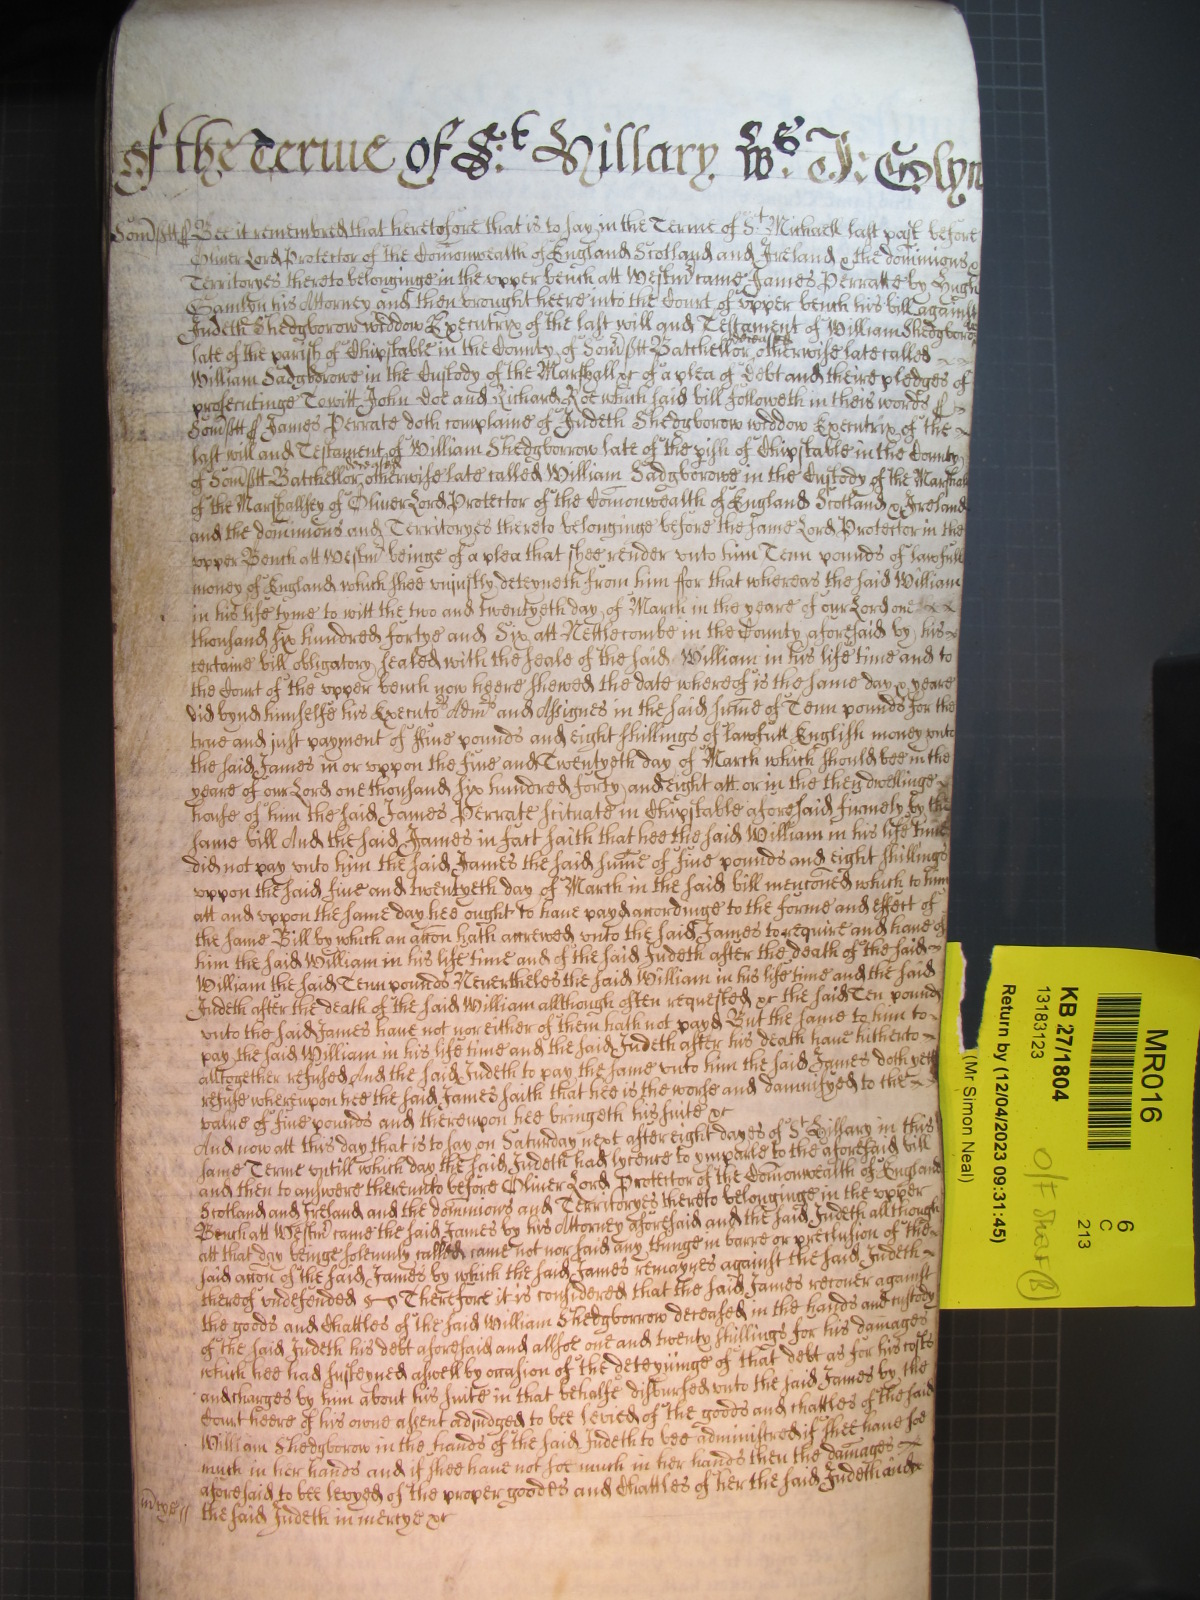 Of the Terme of St. Hillary Ws. J: Glyn
Somsstt ss Bee it remembred that heretofore that is to say in the Terme of St Michaell last past before
Oliver Lord Protector of the Comonwealth of England Scotland and Ireland & the dominions &
Territoryes thereto belonginge in the upper bench att Westmr came James Perratte by Hugh
his Attorney and then brought heere into the Court of upper bench his bill against
Judeth Shedgborow widdow Executrix of the last will and Testament of William Shedgborow
late of the parish of Chipstable in the County of Somsstt Batchellor deceased otherwise late called
William Sadgborowe in the Custody of the Marshall &c of a plea of Debt and theire pledges of
prosecutinge Towitt John Doe and Richard Roe which said bill followeth in theis words ss
Somsstt ss James Perrate doth complaine of Judeth Shedgborow widdow Executrix of the
last will and Testament of William Shedgborrow late of the pish of Chipstable in the County
of Somsstt Batchellor deceased otherwise late called William Sadgborowe in the Custody of the Marshall
of the Marshallsey of Oliver Lord Protector of the Comonwealth of England Scotland & Ireland
and the dominions and Territoryes thereto belonginge before the same Lord Protector in the
upper Bench att Westmr beinge of a plea that shee render unto him Tenn pounds of lawfull
money of England which shee unjustly deteyneth from him ffor that whereas the said William
in his life tyme to witt the two and twentyeth day of March in the yeare of our Lord one
thousand six hundred fortye and Six att Nettlecombe in the County aforesaid by his
certaine bill obligatory sealed with the seale of the said William in his life time and to
the Court of the upper bench now heere shewed the date whereof is the same day & yeare
did bynd himselfe his Executors Admrs and Assignes in the said sume of Tenn pounds for the
true and just payment of ffive pounds and eight shillings of lawfull English money unto
the said James in or uppon the five and Twentyeth day of March which should bee in the
yeare of our Lord one thousand six hundred forty and eight att or in the then dwellinge
house of him the said James Perrate scituate in Chipstable aforesaid firmely by the
same bill And the said James in fact saith that hee the said William in his life time
did not pay unto him the said James the said sume of five pounds and eight shillings
uppon the said five and twentyeth day of March in the said bill mencioned which to him
att and uppon the same day hee ought to have payd accordinge to the forme and effect of
the same Bill by which an accon hath accrewed unto the said James to require and have of
him the said William in his life time and of the said Judeth after the death of the said
William the said Tenn pounds Nevertheles the said William in his life time and the said
Judeth after the death of the said William allthough often requested &c the said Ten pounds
unto the said James have not nor either of them hath not payd But the same to him to
pay the said William in his life time and the said Judeth after his death have hitherto
alltogether refused And the said Judeth to pay the same unto him the said James doth yett
refuse whereupon hee the said James saith that hee is the worse and damnifyed to the
value of five pounds and thereupon hee bringeth his suite &c
And now att this day that is to say on Saturday next after eight dayes of St Hillary in this
same Terme untill which day the said Judeth had lycence to imparle to the aforesaid bill
and then to answere thereunto before Oliver Lord Protector of the Comonwealth of England
Scotland and Ireland and the dominions and Territoryes thereto belonginge in the upper
Bench att Westmr came the said James by his Attorney aforesaid and the said Judeth allthough
att that day beinge solemnly called came not nor said any thinge in barre or preclusion of the
said accon of the said James by which the said James remaynes against the said Judeth
thereof undefended Therefore it is considered that the said James recover against
the goods and Chattles of the said William Shedgborrow deceased in the hands and custody
of the said Judeth his debt aforesaid and allsoe one and twenty shillings for his damages
which hee had susteyned aswell by occasion of the deteyninge of that debt as for his costs
and charges by him about his suite in that behalfe disbursed unto the said James by the
Court heere of his owne assent adjudged to bee levied of the goods and chattles of the said
William Shedgborow in the hands of the said Judeth to bee administred if shee have soe
much in her hands and if shee have not soe much in her hands then the damages
aforesaid to bee levyed of the proper goods and Chattles of her the said Judeth and
mercye the said Judeth in mercye &c
MR016
6
C
213
KB 27/1804
13183123
O/F Sheaf (B)
Return by (12/04/2023 09:31:45)
(Mr Simon Neal)